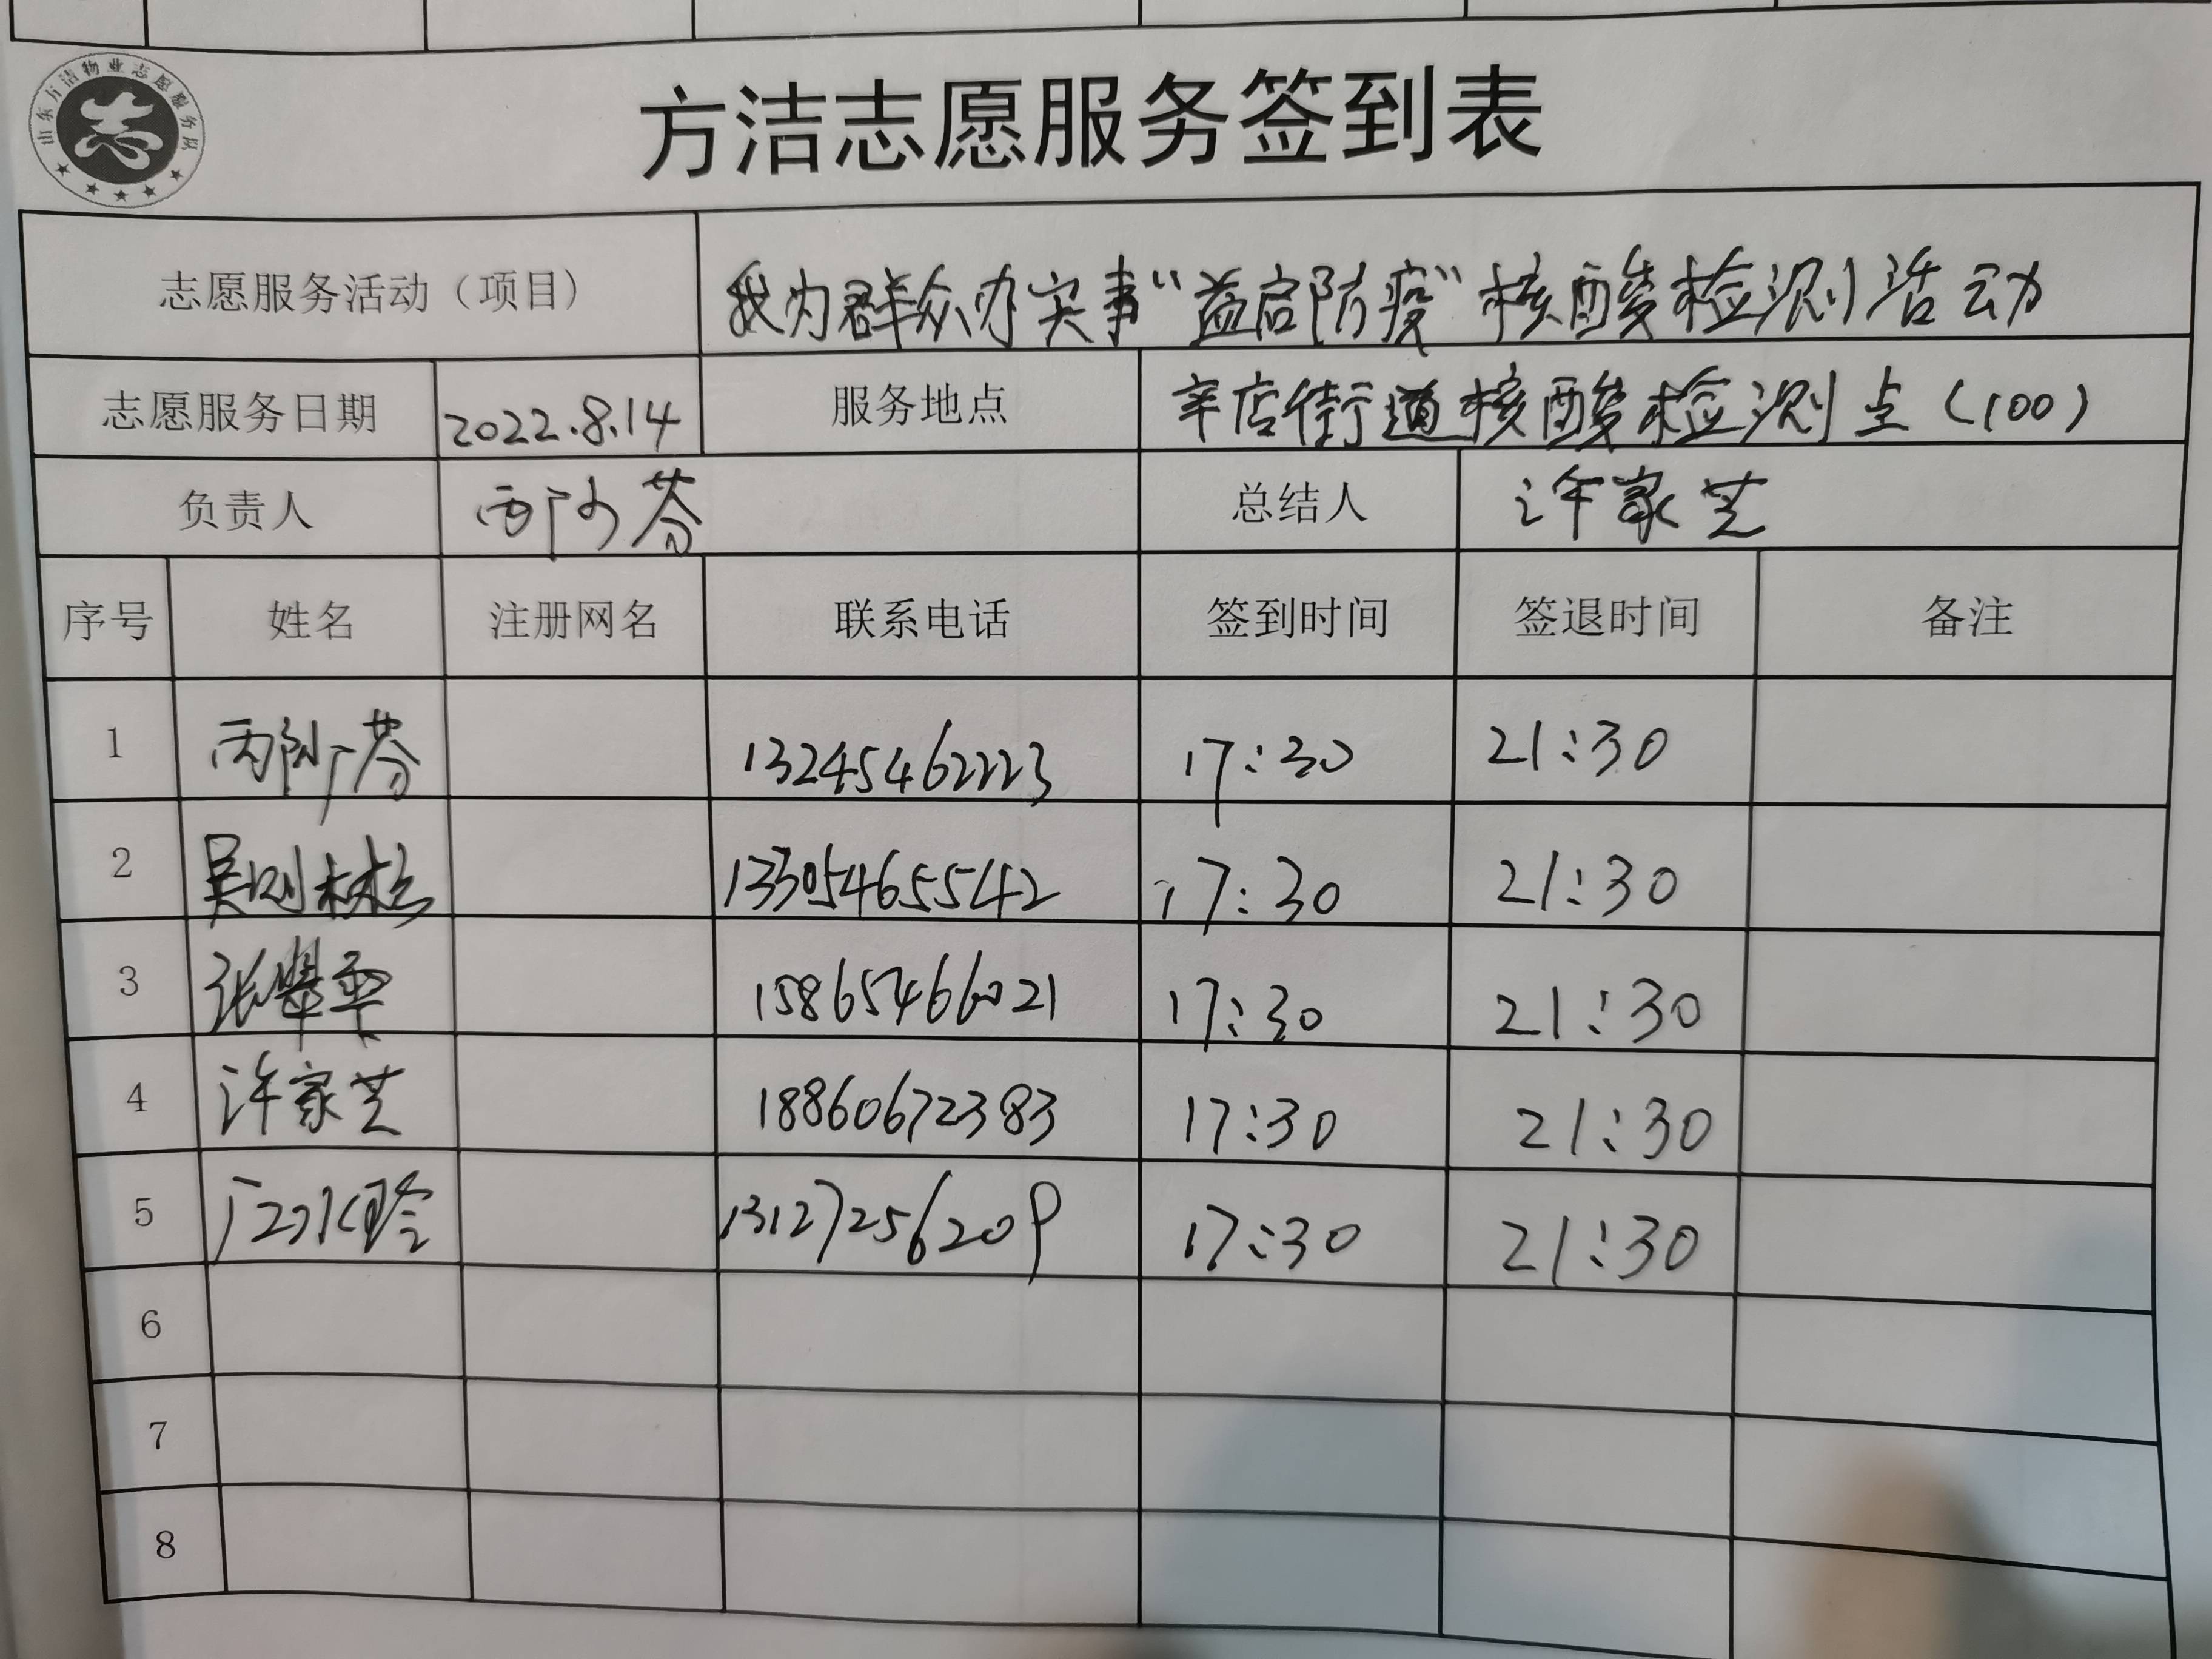 山东方洁物业志愿服务队
方洁志愿服务签到表
志愿服务活动（项目） 我为群众办实事“益启防疫”核酸检测活动
志愿服务日期 2022.8.14 服务地点 辛店街道核酸检测点（100）
负责人 总结人 许家芝
序号 姓名 注册网名 联系电话 签到时间 签退时间 备注
1 13245462223 17:30 21:30
2 13305465542 17:30 21:30
3 15865466021 17:30 21:30
4 许家芝 18860672383 17:30 21:30
5 13127256209 17:30 21:30
6
7
8